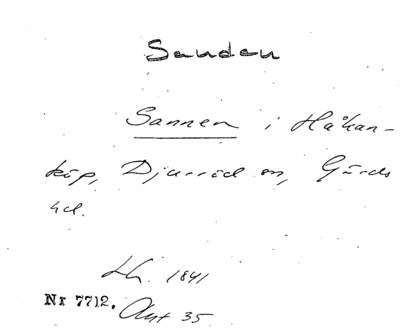 Sanden
Sannen i Håkan-
köp, Djurröd sn, Gärds
hd.
Lh. 1841
Nr 7712. Ant 35